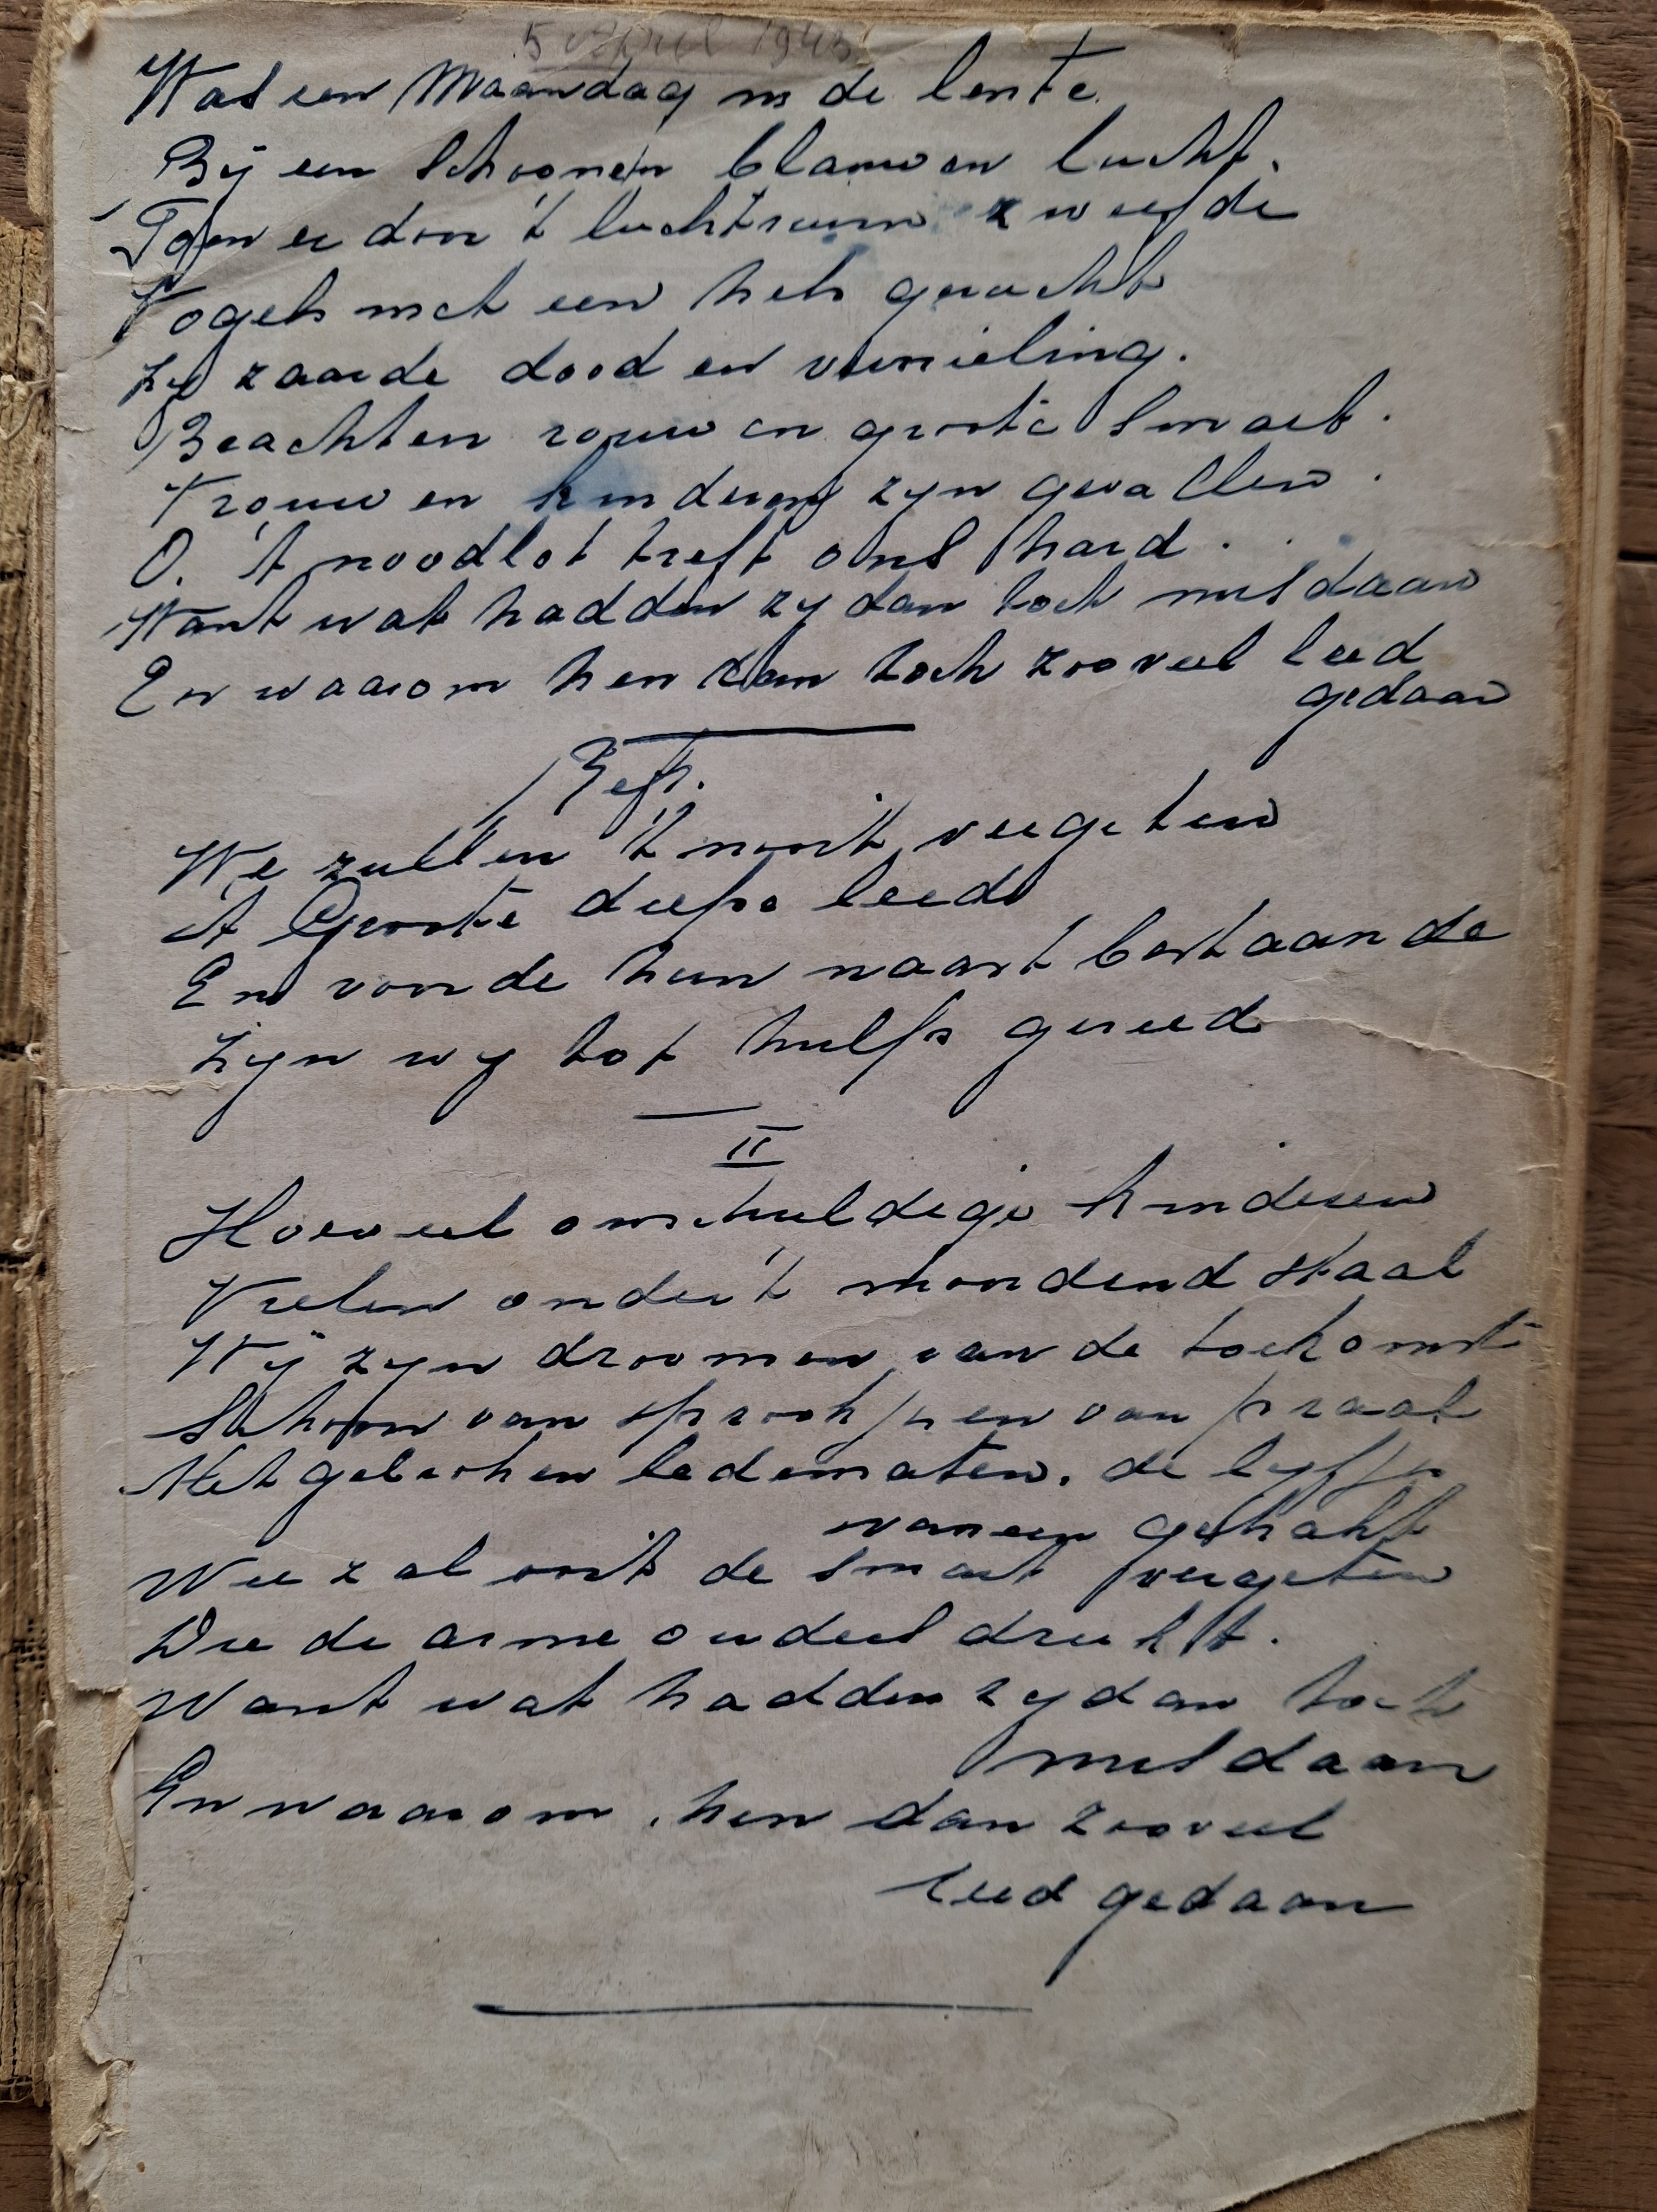 5 April 1943
Was een Maandag in de lente.
Bij een schoonen blauwen lucht.
Toen er door 't luchtruim zweefde
Vogels met een hels gerucht
Zy zaaide dood en vernieling.
Brachten rouw en groote smart.
Vrouw en kinderen zyn gevallen.
O. 't noodlot treft ons hard.
Want wat hadden zy dan toch misdaan
En waarom hen dan toch zooveel leed
gedaan
Refr.
We zullen 't nooit vergeten
't Groote diepe leed
En voor de hun naastbestaande
Zijn wy tot hulp gereed
II
Hoeveel onschuldige kinderen
Vielen onder 't moordend staal
Wij zyn droomen van de toekomst
Schoon van sprookjes en van praal
Met gebroken ledematen. de lyfjes
vaneen gehakt
Wie zal ooit de smart vergeten
Die de arme ouders drukt.
Want wat hadden zy dan toch
misdaan
En waarom hen dan zooveel
leed gedaan